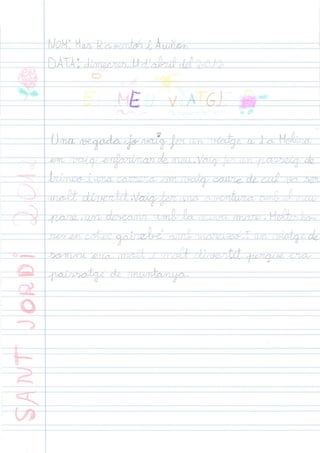 NOM: Mar Raventós i Auñon
DATA: dimecres 11 d'abril del 2012
EL MEU VIATGE
Una vegada jo vaig fer un viatge a La Molina
em vaig enfarinar de neu. Vaig fer un passeig de
trineo i una carrera em vaig caure de cul va ser
molt divertit. Vaig fer una aventura amb el meu
pare, un descans amb la meva mare. Moltes ho-
res en cotxe gairebé amb mareixo. I un viatge de
somni era molt i molt divertit perquè era
paissatge de muntanya.
SANT JORDI 2012